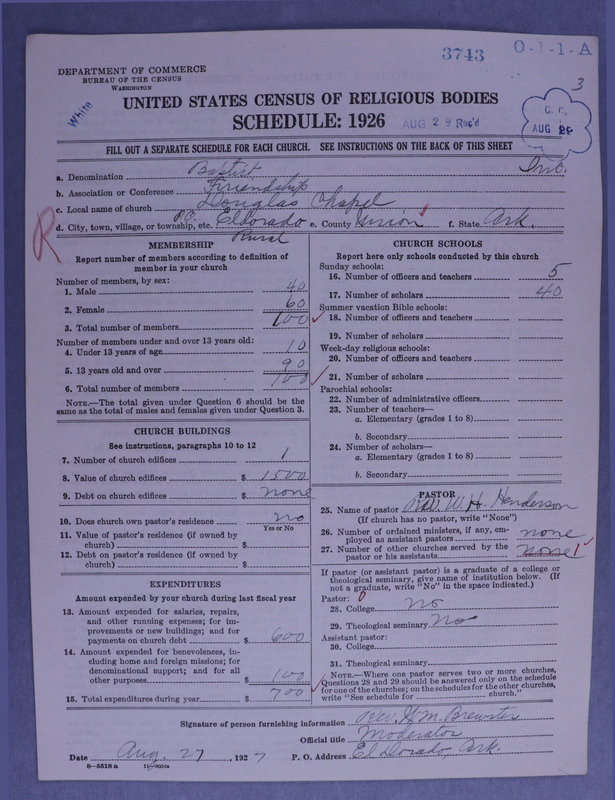 3743 O-1-1-A
DEPARTMENT OF COMMERCE
BUREAU OF THE CENSUS
WASHINGTON
3
White
UNITED STATES CENSUS OF RELIGIOUS BODIES
SCHEDULE: 1926
AUG 29 Rec'd
C. C.
AUG 29
FILL OUT A SEPARATE SCHEDULE FOR EACH CHURCH. SEE INSTRUCTIONS ON THE BACK OF THIS SHEET
a. Denomination Baptist Inc.
b. Association or Conference Friendship
c. Local name of church Douglas Chapel
d. City, town, village, or township, etc. P.O. Eldorado e. County Union f. State Ark.
R Rural
MEMBERSHIP
Report number of members according to definition of
member in your church
Number of members, by sex:
1. Male 40
2. Female 60
3. Total number of members 100
Number of members under and over 13 years old:
4. Under 13 years of age 10
5. 13 years old and over 90
6. Total number of members 100
NOTE.—The total given under Question 6 should be the
same as the total of males and females given under Question 3.
CHURCH BUILDINGS
See instructions, paragraphs 10 to 12
7. Number of church edifices 1
8. Value of church edifices $ 1500
9. Debt on church edifices $ none
10. Does church own pastor's residence no
Yes or No
11. Value of pastor's residence (if owned by
church) $
12. Debt on pastor's residence (if owned by
church) $
EXPENDITURES
Amount expended by your church during last fiscal year
13. Amount expended for salaries, repairs,
and other running expenses; for im-
provements or new buildings; and for
payments on church debt $ 600
14. Amount expended for benevolences, in-
cluding home and foreign missions; for
denominational support; and for all
other purposes $ 100
15. Total expenditures during year $ 700
CHURCH SCHOOLS
Report here only schools conducted by this church
Sunday schools:
16. Number of officers and teachers 5
17. Number of scholars 40
Summer vacation Bible schools:
18. Number of officers and teachers
19. Number of scholars
Week-day religious schools:
20. Number of officers and teachers
21. Number of scholars
Parochial schools:
22. Number of administrative officers
23. Number of teachers—
a. Elementary (grades 1 to 8)
b. Secondary
24. Number of scholars—
a. Elementary (grades 1 to 8)
b. Secondary
PASTOR
25. Name of pastor Rev. W. H. Henderson
(If church has no pastor, write "None")
26. Number of ordained ministers, if any, em-
ployed as assistant pastors none
27. Number of other churches served by the
pastor or his assistants none 1
If pastor (or assistant pastor) is a graduate of a college or
theological seminary, give name of institution below. (If
not a graduate, write "No" in the space indicated.)
Pastor: 0
28. College no
29. Theological seminary no
Assistant pastor:
30. College
31. Theological seminary
NOTE.—Where one pastor serves two or more churches,
Questions 28 and 29 should be answered only on the schedule
for one of the churches; on the schedules for the other churches,
write "See schedule for church."
Signature of person furnishing information Rev. W. M. Brewster
Official title Moderator
Date Aug. 27, 1927 P. O. Address El Dorado, Ark.
8—5518 a